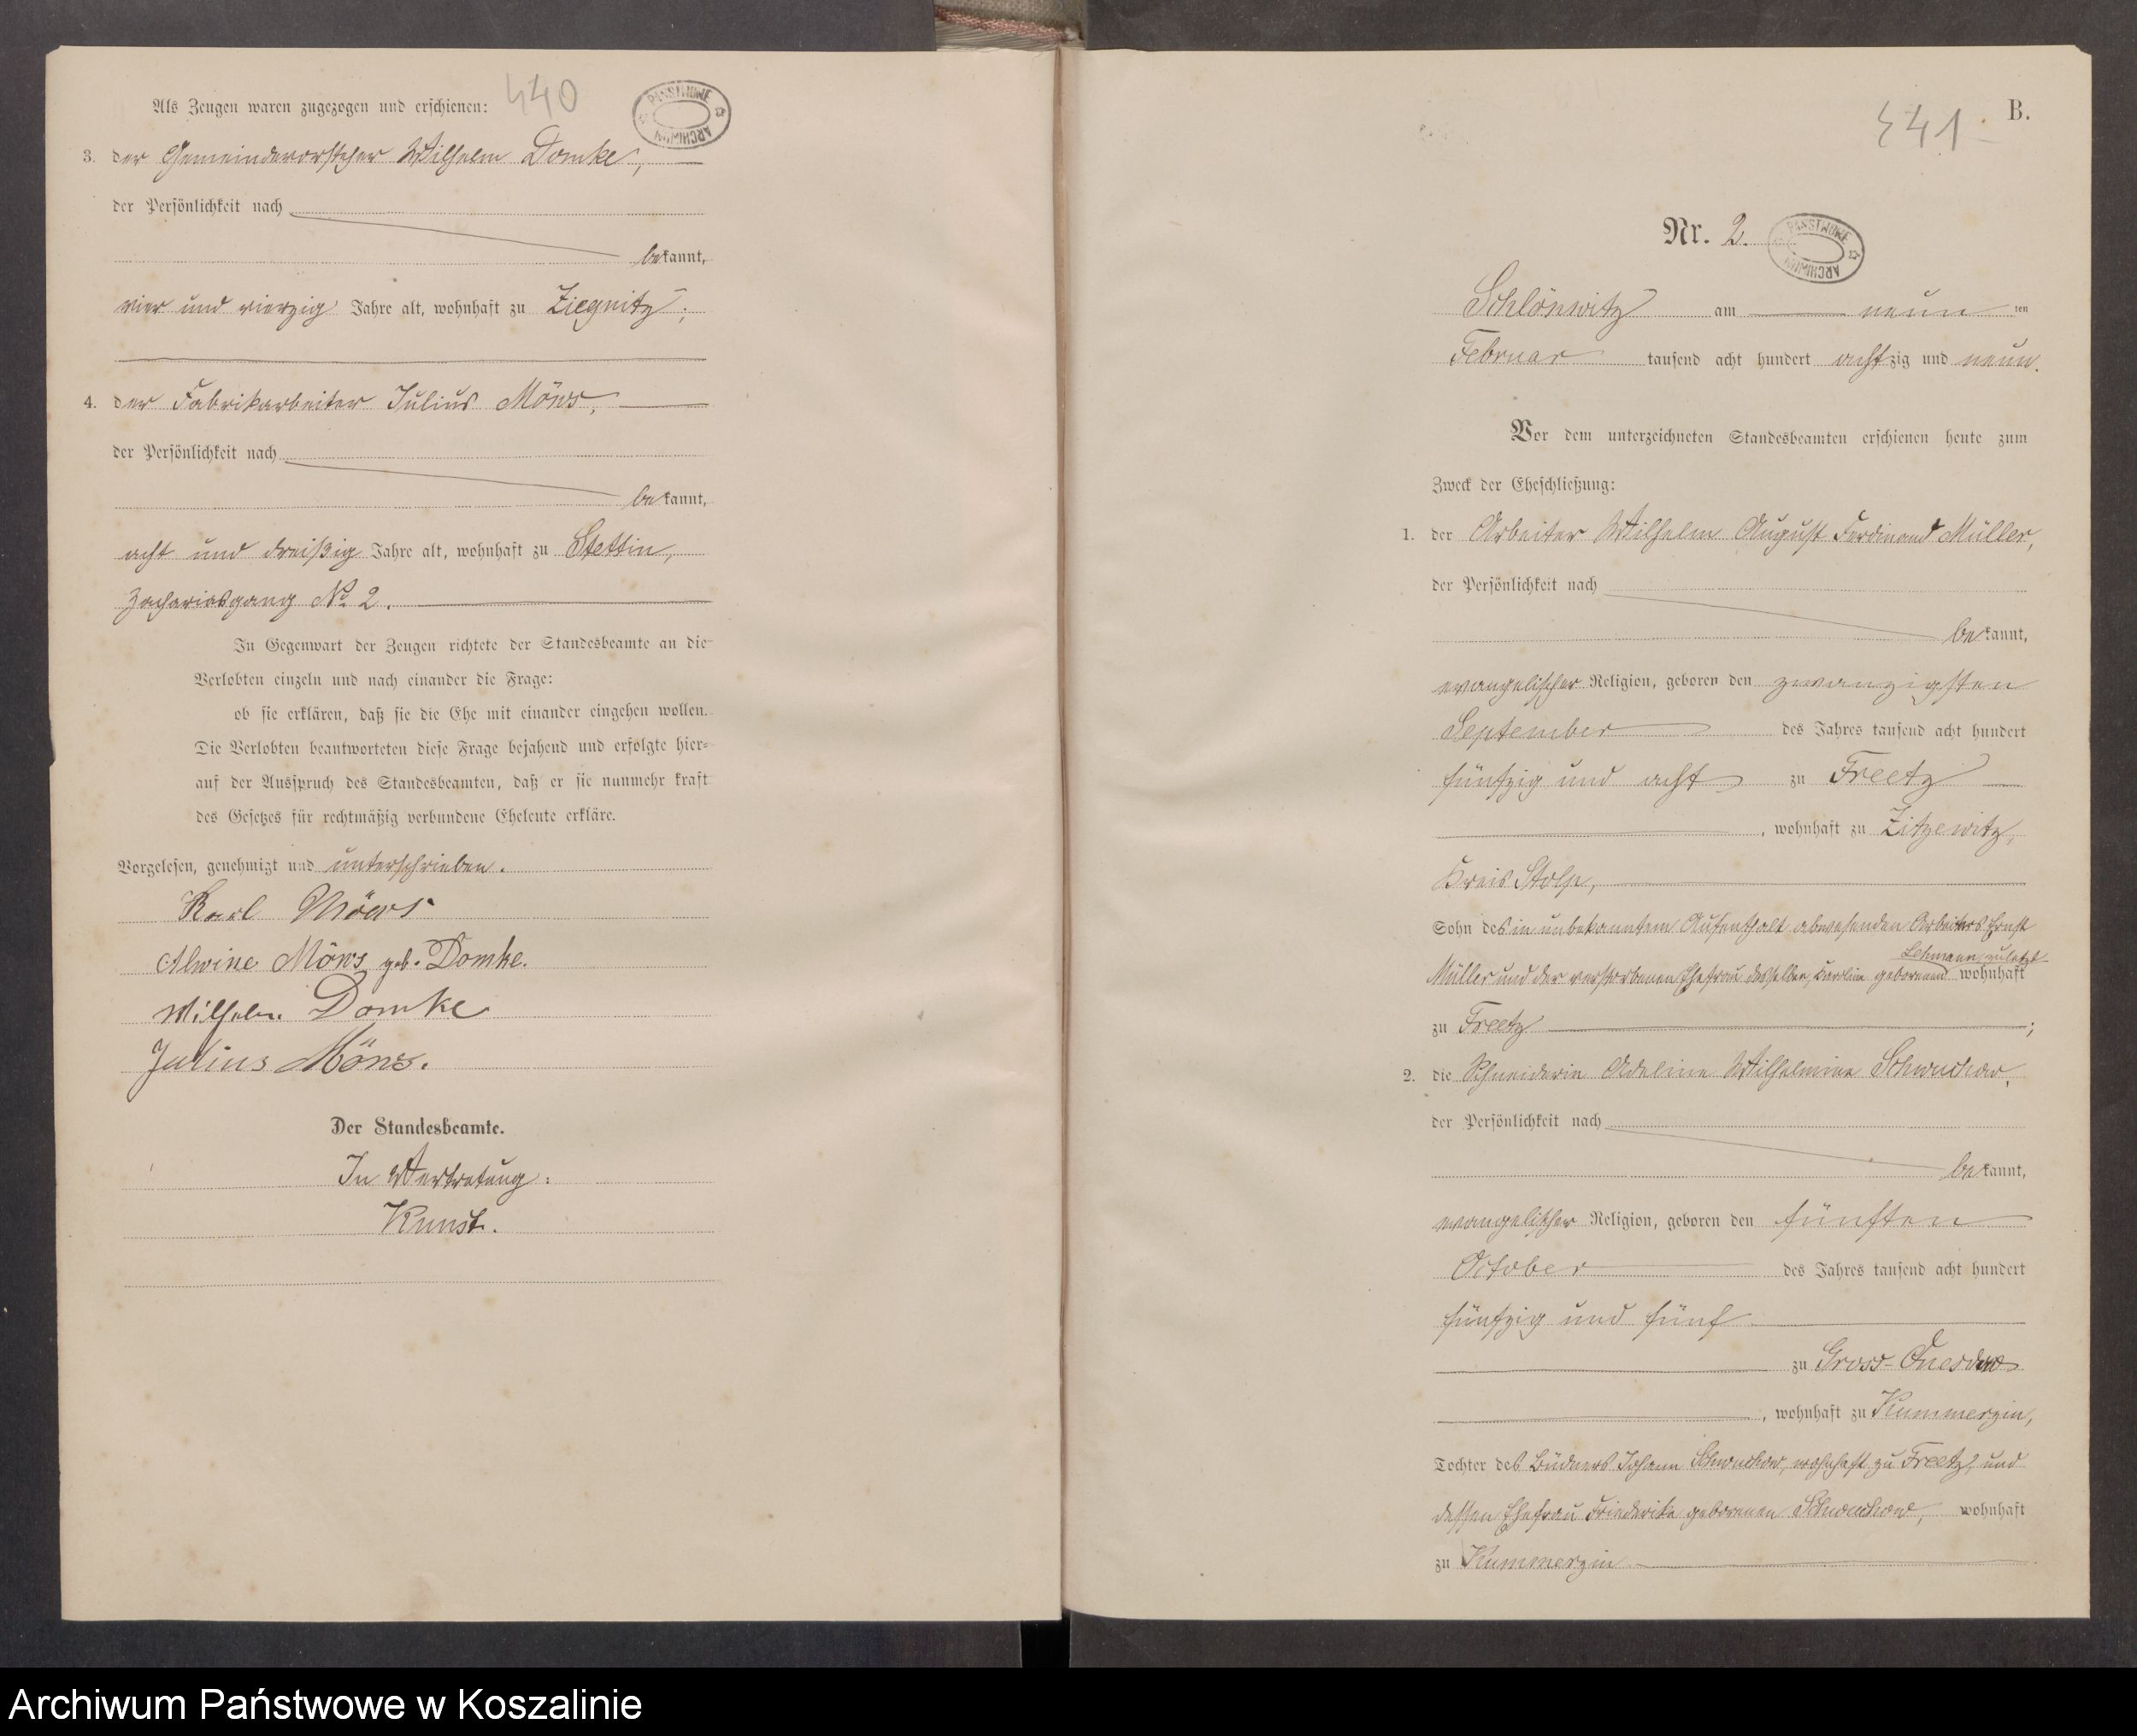 440
PAŃSTWOWE ARCHIWUM
Als Zeugen waren zugezogen und erschienen:
3. der Gemeindevorsteher Wilhelm Domke,
der Persönlichkeit nach
bekannt,
vier und vierzig Jahre alt, wohnhaft zu Ziegnitz;
4. der Fabrikarbeiter Julius Möws,
der Persönlichkeit nach
bekannt,
acht und dreißig Jahre alt, wohnhaft zu Stettin,
Zachariasgang No 2.
In Gegenwart der Zeugen richtete der Standesbeamte an die
Verlobten einzeln und nach einander die Frage:
ob sie erklären, daß sie die Ehe mit einander eingehen wollen.
Die Verlobten beantworteten diese Frage bejahend und erfolgte hier-
auf der Ausspruch des Standesbeamten, daß er sie nunmehr kraft
des Gesetzes für rechtmäßig verbundene Eheleute erkläre.
Vorgelesen, genehmigt und unterschrieben.
Karl Möws
Alwine Möws geb. Domke.
Wilhelm Domke
Julius Möws.
Der Standesbeamte.
In Vertretung:
Kunst.
441
B.
Nr. 2.
PAŃSTWOWE ARCHIWUM
Schlönwitz am neunten
Februar tausend acht hundert achtzig und neun.
Vor dem unterzeichneten Standesbeamten erschienen heute zum
Zweck der Eheschließung:
1. der Arbeiter Wilhelm August Ferdinand Müller,
der Persönlichkeit nach
bekannt,
evangelischer Religion, geboren den zwanzigsten
September des Jahres tausend acht hundert
fünfzig und acht zu Freetz
, wohnhaft zu Zitzewitz,
Kreis Stolp,
Sohn des in unbekanntem Aufenthalt abwesenden Arbeiters Ernst
Lehmann, zuletzt
Müller und der verstorbenen Ehefrau desselben, Karoline geborenen wohnhaft
zu Freetz;
2. die Schneiderin Adeline Wilhelmine Schwuchow,
der Persönlichkeit nach
bekannt,
evangelischer Religion, geboren den fünften
October des Jahres tausend acht hundert
fünfzig und fünf
zu Gross-Quesdow
, wohnhaft zu Kummerzin,
Tochter des Büdners Johann Schwuchow, wohnhaft zu Freetz, und
dessen Ehefrau Friederike geborenen Schwuchow, wohnhaft
zu Kummerzin
Archiwum Państwowe w Koszalinie